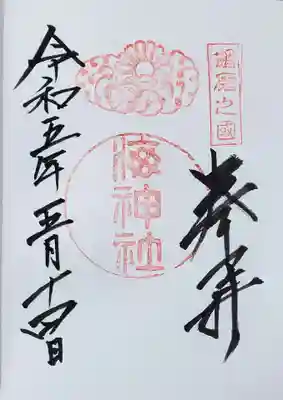 之國
奉拝
海神社
令和五年五月十四日